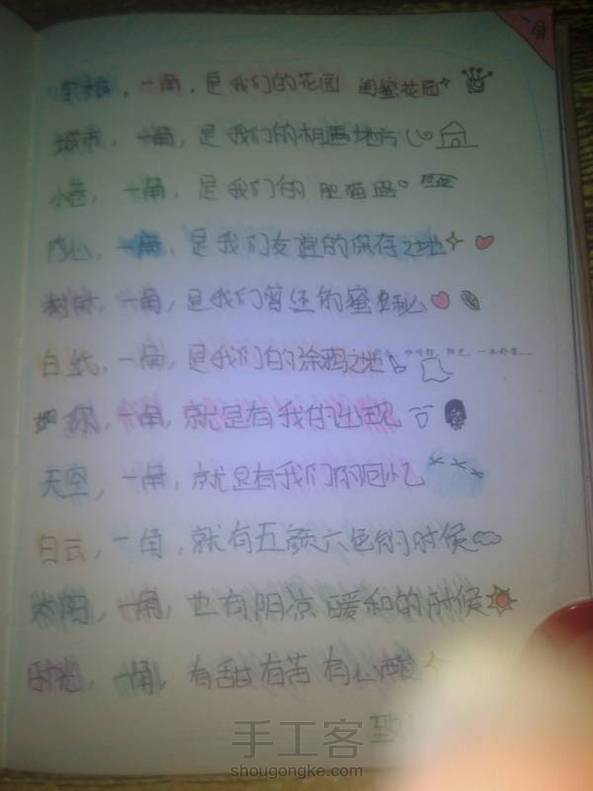 一角
一角，是我们的花园 闺蜜花园
城市，一角，是我们的相遇地方
小巷，一角，是我们的
内心，一角，是我们友谊的保存之地
树林，一角，是我们曾经的蜜
白纸，一角，是我们的涂鸦之地
一角，就是有我们的出现
天空，一角，就是有我们的回忆
白云，一角，就有五颜六色的时候
太阳，一角，也有阴凉 暖和的时候
时光，一角，有甜有苦 有心酸
手工客
shougongke.com